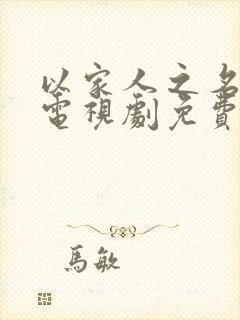 以家人之名
電視劇免費
馬敏